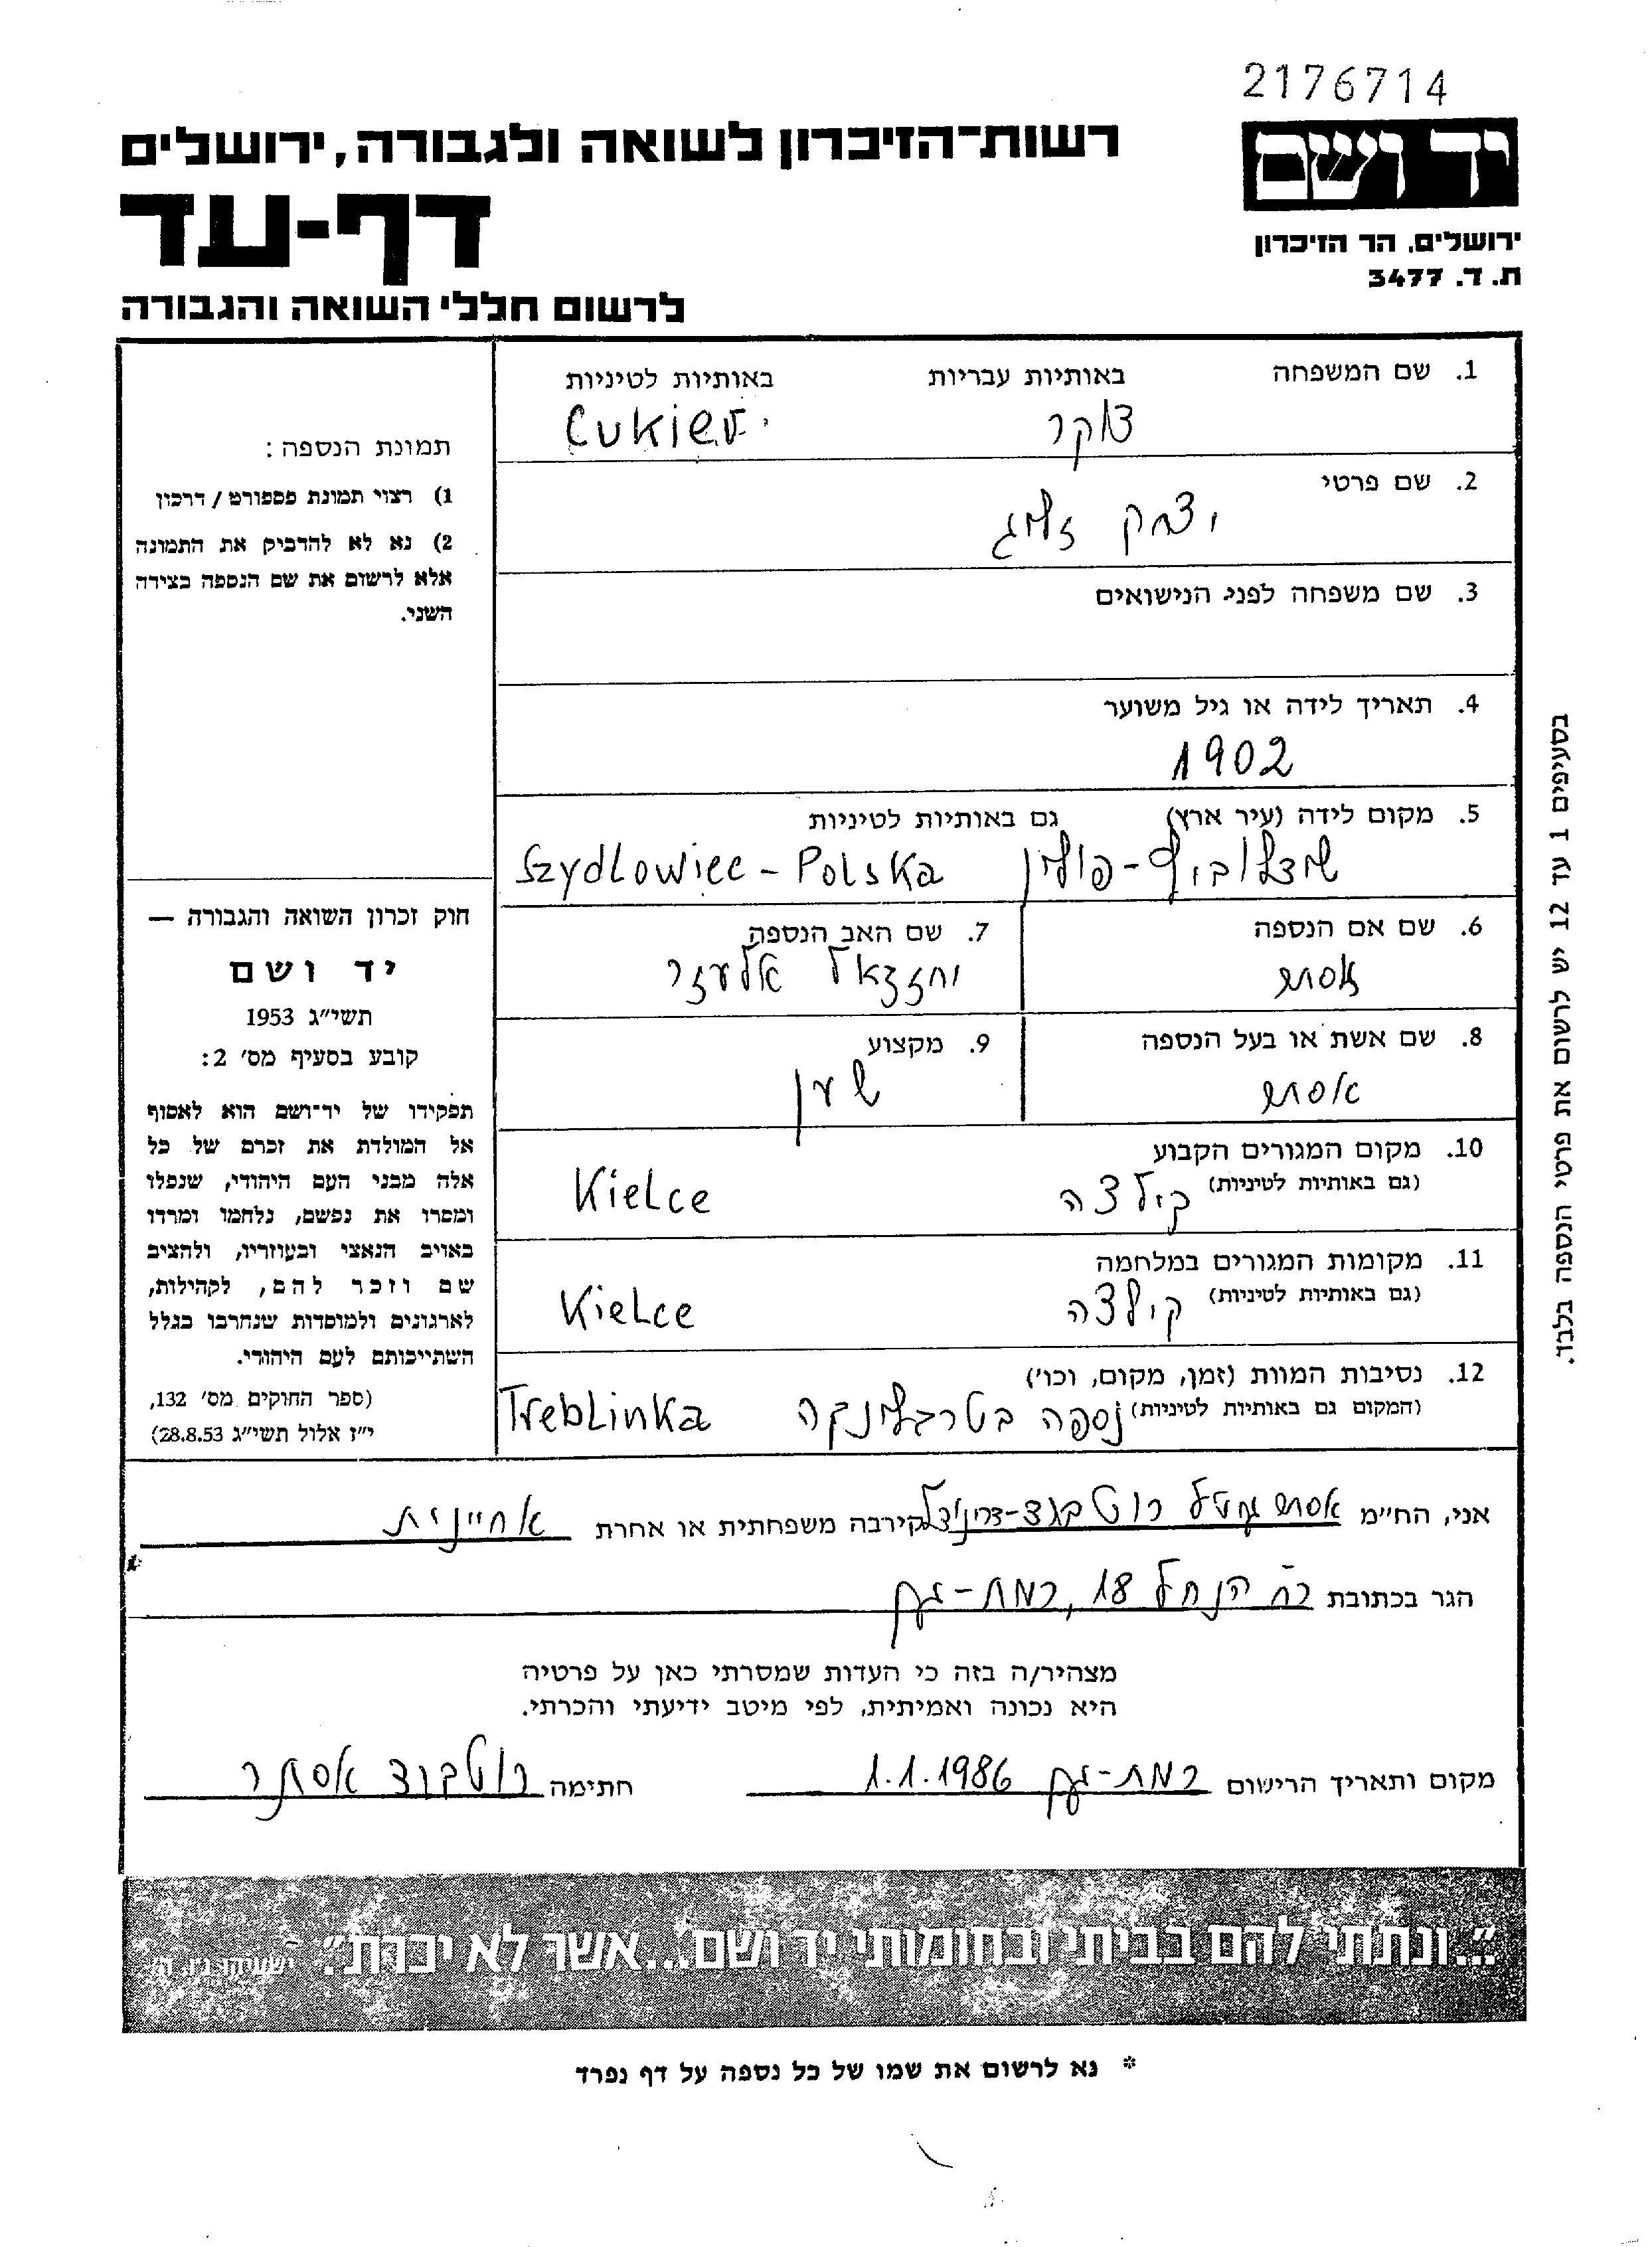 2176714
יד ושם
ירושלים. הר הזיכרון
ת. ד. 3477
רשות־הזיכרון לשואה ולגבורה, ירושלים
דף-עד
לרשום חללי השואה והגבורה
1. שם המשפחה באותיות עבריות באותיות לטיניות
צוקר Cukier
2. שם פרטי
יצחק זליג
3. שם משפחה לפני הנישואים
4. תאריך לידה או גיל משוער
1902
5. מקום לידה (עיר ארץ) גם באותיות לטיניות
שידלוביץ-פולין Szydlowiec - Polska
6. שם אם הנספה
אסתר
7. שם האב הנספה
יחזקאל אלעזר
8. שם אשת או בעל הנספה
אסתר
9. מקצוע
שען
10. מקום המגורים הקבוע
(גם באותיות לטיניות) קילצה Kielce
11. מקומות המגורים במלחמה
(גם באותיות לטיניות) קילצה Kielce
12. נסיבות המוות (זמן, מקום, וכו')
(המקום גם באותיות לטיניות) נספה בטרבלינקה Treblinka
תמונת הנספה:
1) רצוי תמונת פספורט / דרכון
2) נא לא להדביק את התמונה
אלא לרשום את שם הנספה בצידה
השני.
חוק זכרון השואה והגבורה —
יד ושם
תשי"ג 1953
קובע בסעיף מס' 2:
תפקידו של יד־ושם הוא לאסוף
אל המולדת את זכרם של כל
אלה מבני העם היהודי, שנפלו
ומסרו את נפשם, נלחמו ומרדו
באויב הנאצי ובעוזריו, ולהציב
שם וזכר להם, לקהילות,
לארגונים ולמוסדות שנחרבו בגלל
השתייכותם לעם היהודי.
(ספר החוקים מס' 132,
י"ז אלול תשי"ג 28.8.53)
בסעיפים 1 עד 12 יש לרשום את פרטי הנספה בלבד.
אני, הח"מ אסתר רוטבוד קירבה משפחתית או אחרת אחיינית
הגר בכתובת רח' הנחל 18, רמת-גן
מצהיר/ה בזה כי העדות שמסרתי כאן על פרטיה
היא נכונה ואמיתית, לפי מיטב ידיעתי והכרתי.
מקום ותאריך הרישום רמת-גן 1.1.1986 חתימה רוטבוד אסתר
"...ונתתי להם בביתי ובחומותי יד ושם...אשר לא יכרת". ישעיהו נ"ו, ה'
* נא לרשום את שמו של כל נספה על דף נפרד